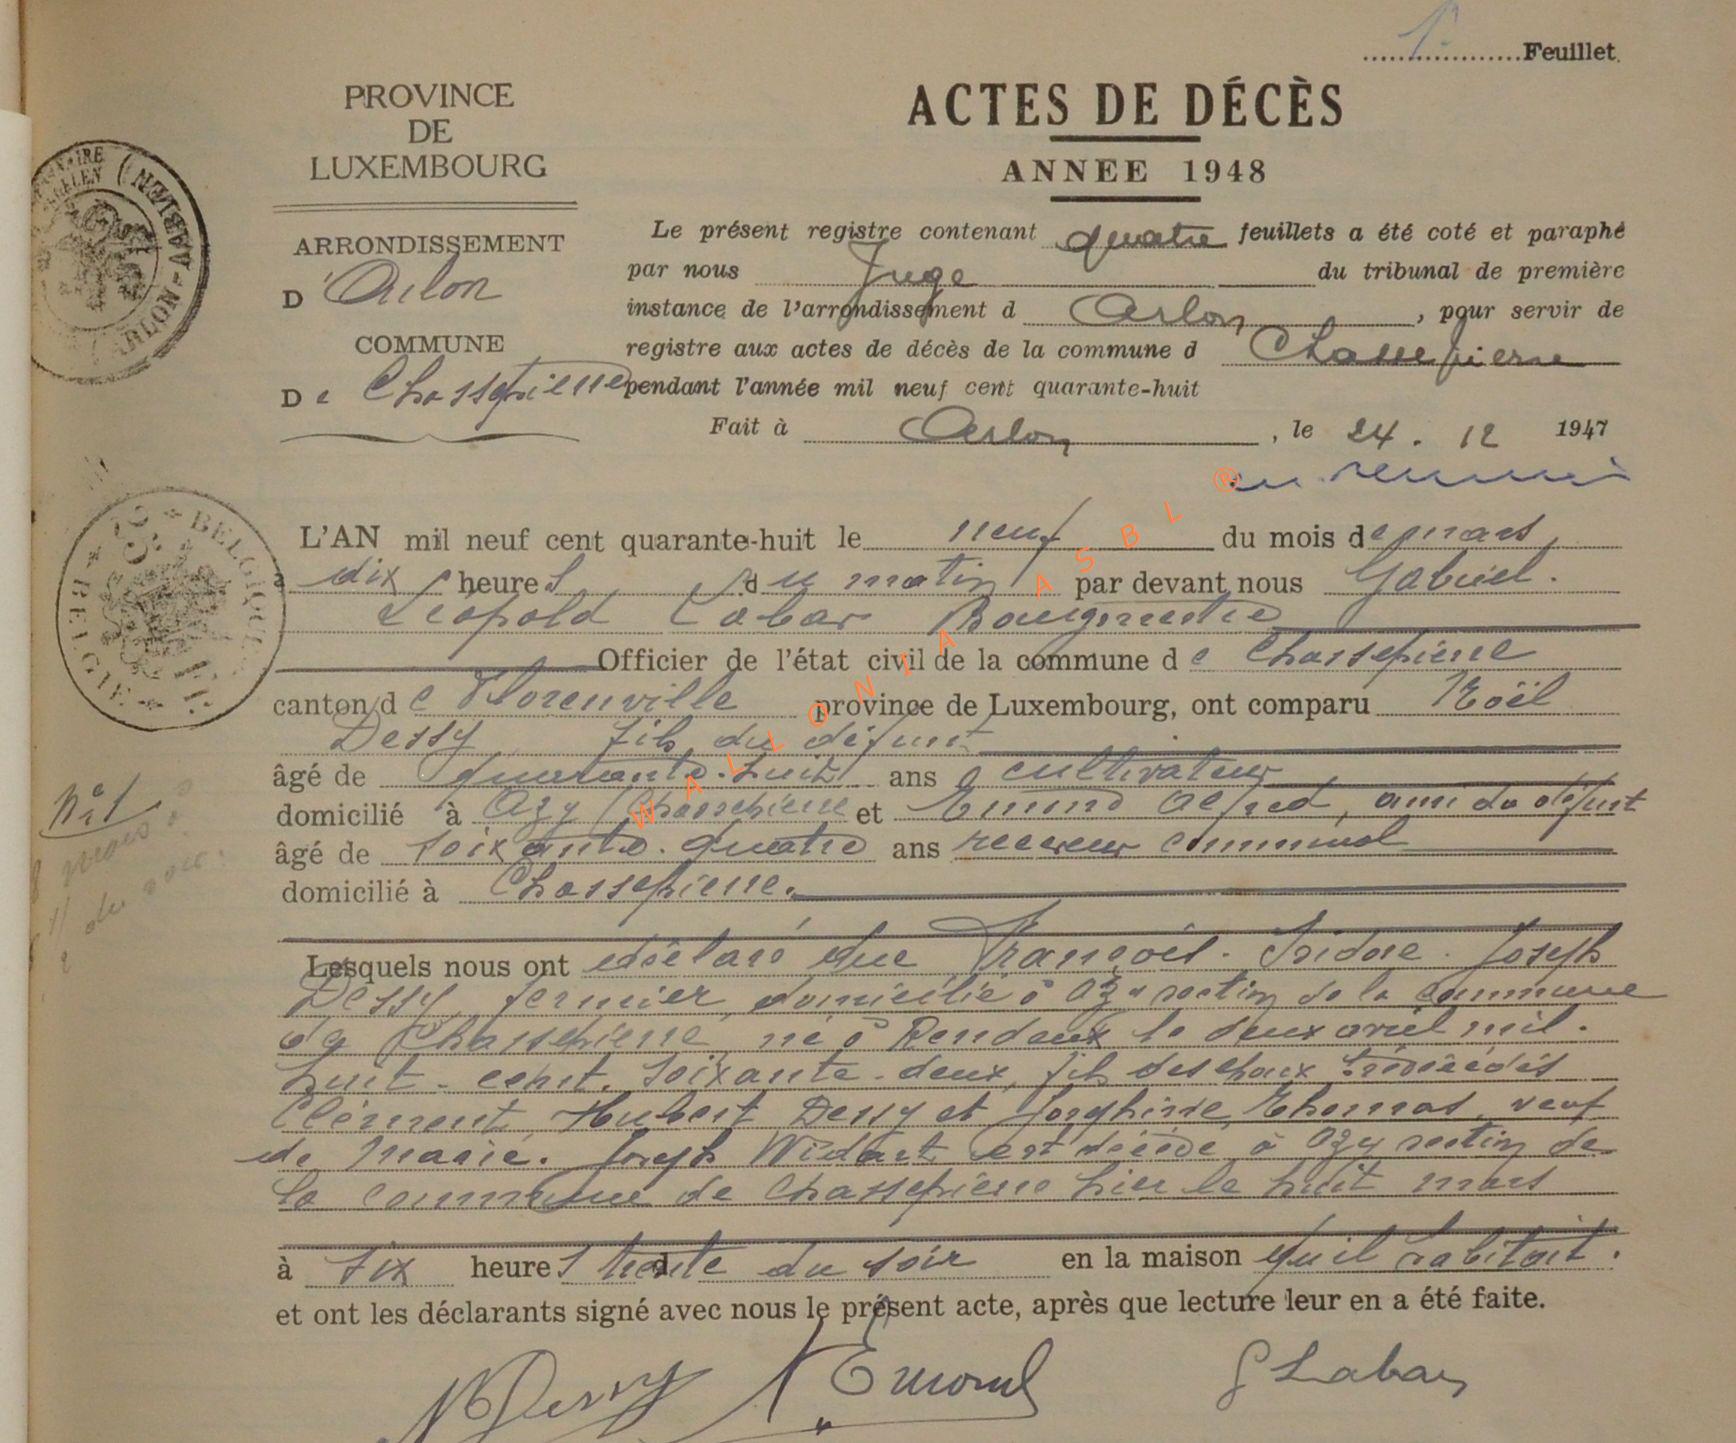 1
Feuillet.
PROVINCE
DE
LUXEMBOURG
ARRONDISSEMENT
D'Arlon
COMMUNE
De Chassepierre
ACTES DE DÉCÈS
ANNEE 1948
Le présent registre contenant quatre feuillets a été coté et paraphé
par nous Juge du tribunal de première
instance de l'arrondissement d Arlon, pour servir de
registre aux actes de décès de la commune d Chassepierre
pendant l'année mil neuf cent quarante-huit
Fait à Arlon, le 24. 12 1947
BELGIQUE
BELGIE
WALLONIA ASBL ®
L'AN mil neuf cent quarante-huit le neuf du mois de mars,
à dix heures du matin par devant nous Gabriel.
Léopold Labar Bourgmestre
Officier de l'état civil de la commune de Chassepierre
canton de Florenville province de Luxembourg, ont comparu Noël
Dessy, fils du défunt
âgé de quarante-huit ans cultivateur
domicilié à Azy (Chassepierre et Emond Alfred, ami du défunt
âgé de soixante-quatre ans receveur communal
domicilié à Chassepierre.
N° 1
Lesquels nous ont déclaré que François-Isidore-Joseph
Dessy, fermier, domicilié à Azy section de la commune
de Chassepierre, né à Rendeux le deux avril mil-
huit-cent-soixante-deux, fils des époux prédécédés
Clément, Hubert Dessy et Josephine Thomas, veuf
de Marie-Joseph Widart est décédé à Azy section de
la commune de Chassepierre hier le huit mars
à six heures trente du soir en la maison qu'il habitait.
et ont les déclarants signé avec nous le présent acte, après que lecture leur en a été faite.
N Dessy A Emond G Labar